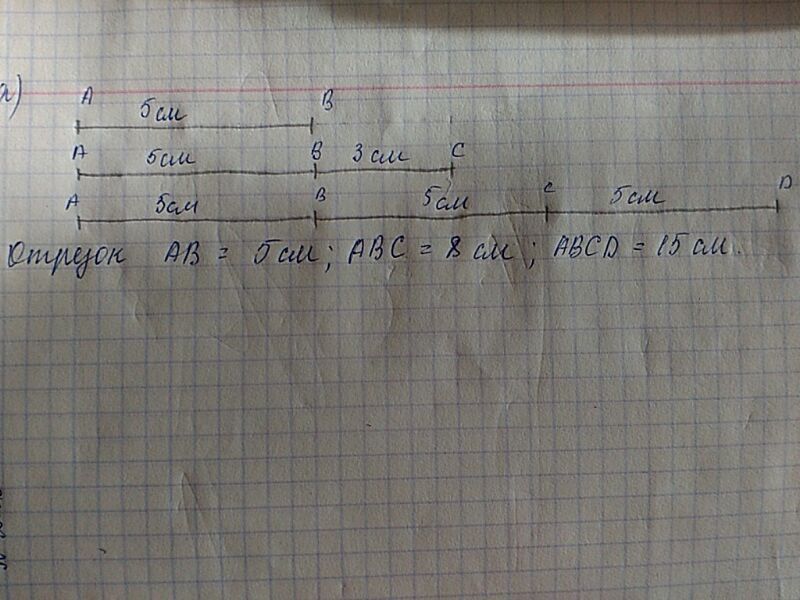 а)
A 5см B
A 5см B 3см C
A 5см B 5см C 5см D
Отрезок AB = 5см; ABC = 8 см; ABCD = 15 см.